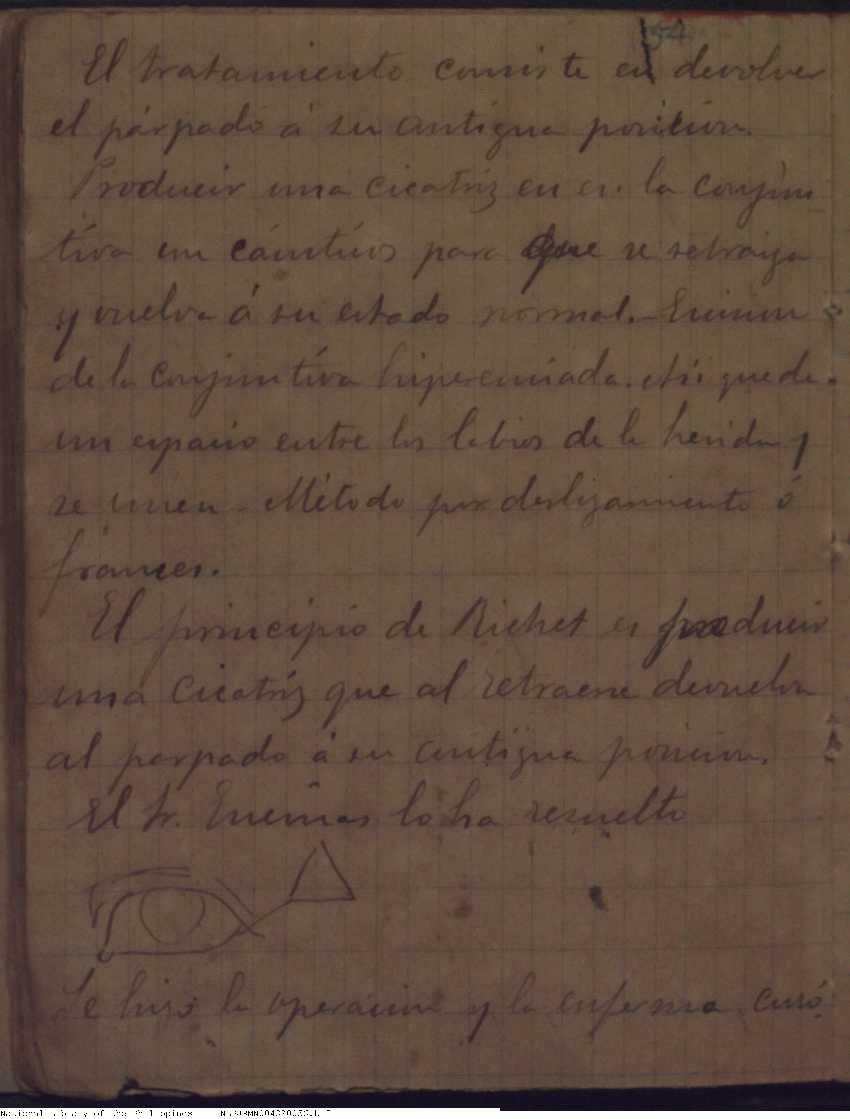 54
El tratamiento consiste en devolver
el párpado á su antigua posicion.
Producir una cicatriz en la conjun
tiva un cáustivos para que se retraiga
y vuelva á su estado normal. - Escision
de la conjuntiva hiperemiada. Asi queda
un espacio entre los labios de la herida y
se unen - Método por deslizamiento ó
frances.
El principio de Richet es producir
una cicatriz que al retraerse devuelva
al parpado á su antigua posicion.
El Sr. Encinas lo ha resuelto
Se hizo la operacion y la enferma curó
National Library of the Philippines